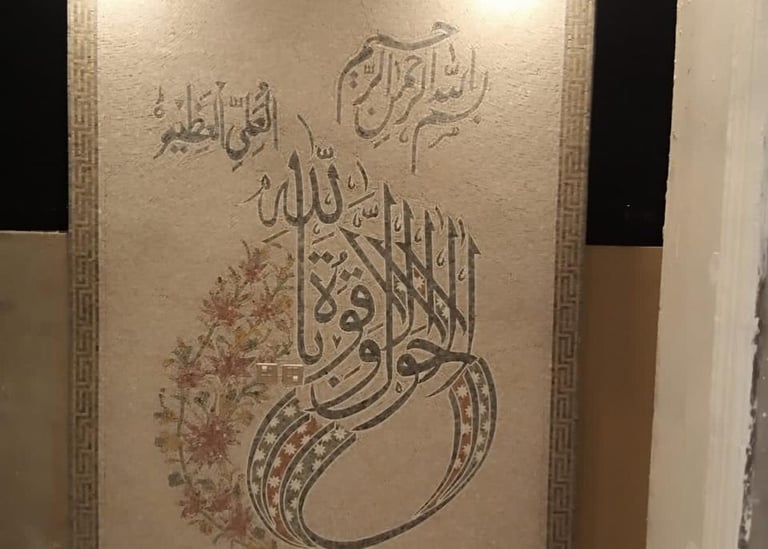 بسم الله الرحمن الرحيم
لا حول ولا قوة إلا بالله
العلي العظيم